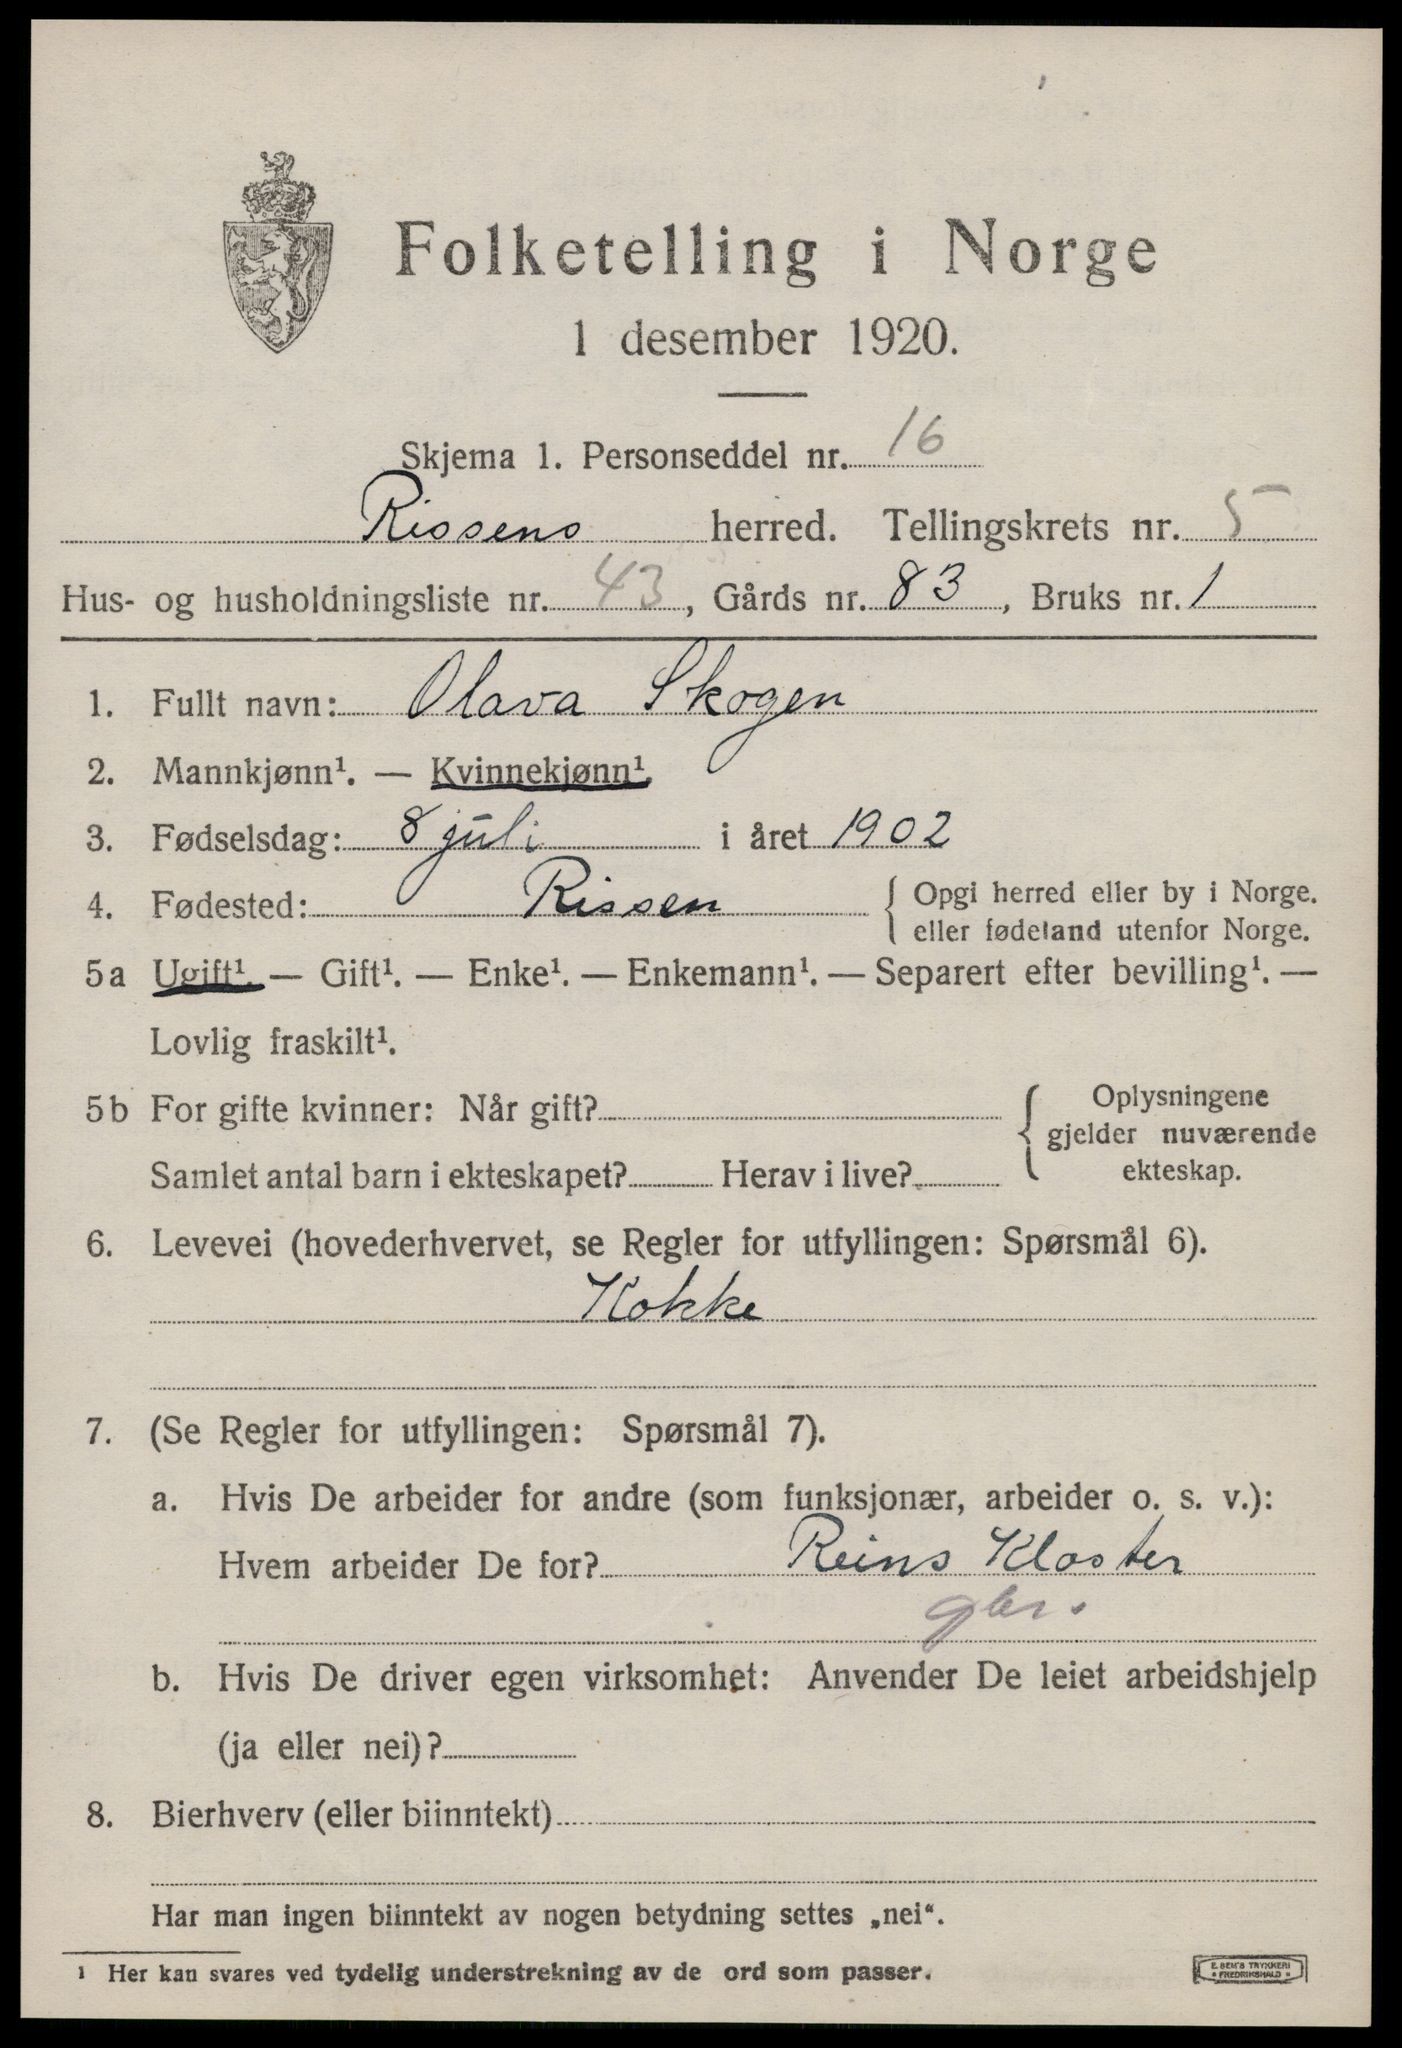 Folketelling i Norge
1 desember 1920.
Skjema 1. Personseddel nr. 16
Rissens herred. Tellingskrets nr. 5
Hus- og husholdningsliste nr. 43, Gårds nr. 83, Bruks nr. 1
1. Fullt navn: Olava Skogen
2. Mannkjønn¹. — Kvinnekjønn¹.
3. Fødselsdag: 8 juli i året 1902
4. Fødested: Rissen { Opgi herred eller by i Norge.
eller fødeland utenfor Norge.
5a Ugift¹. — Gift¹. — Enke¹. — Enkemann¹. — Separert efter bevilling¹. —
Lovlig fraskilt¹.
5b For gifte kvinner: Når gift? { Oplysningene
gjelder nuværende
Samlet antal barn i ekteskapet? Herav i live? ekteskap.
6. Levevei (hovederhvervet, se Regler for utfyllingen: Spørsmål 6).
Kokke
7. (Se Regler for utfyllingen: Spørsmål 7).
a. Hvis De arbeider for andre (som funksjonær, arbeider o. s. v.):
Hvem arbeider De for? Reins Kloster
gbr.
b. Hvis De driver egen virksomhet: Anvender De leiet arbeidshjelp
(ja eller nei)?
8. Bierhverv (eller biinntekt)
Har man ingen biinntekt av nogen betydning settes „nei“.
¹ Her kan svares ved tydelig understrekning av de ord som passer.
E. SEM'S TRYKKERI
* FREDRIKSHALD *